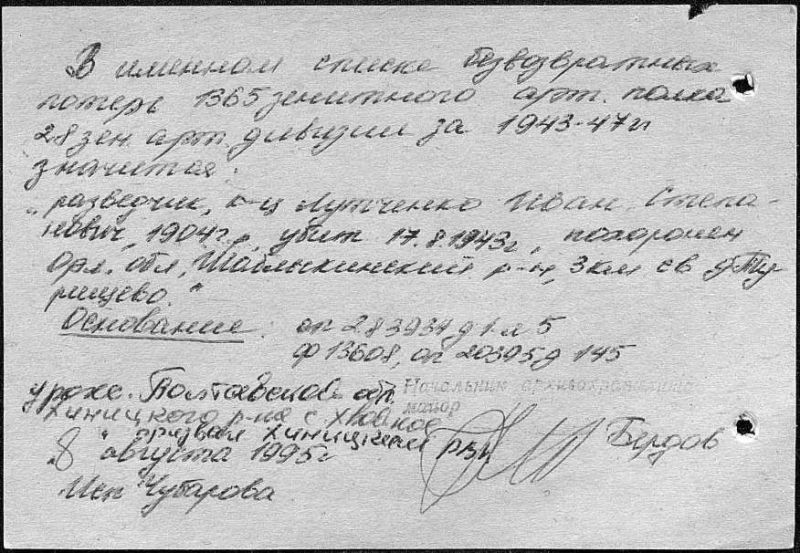 В именном списке безвозвратных
потерь 1365 зенитного арт. полка
28 зен. арт. дивизии за 1943-47 гг
значится:
"разведчик, к-ц Лутченко Иван Степа-
нович, 1904 г.р., убит 17.8.1943 г, похоронен
Орл. обл, Шаблыкинский р-н, 3 км св д. Ту-
рищево."
Основание: оп 283934 д 1 л 5
ф 13608, оп 20395 д 145
урож. Полтавской обл Начальник архивохранилища
Хиницкого р-на с майор
призван Хиницким РВК Бердов
"8" августа 1995 г
Исп Чубарова